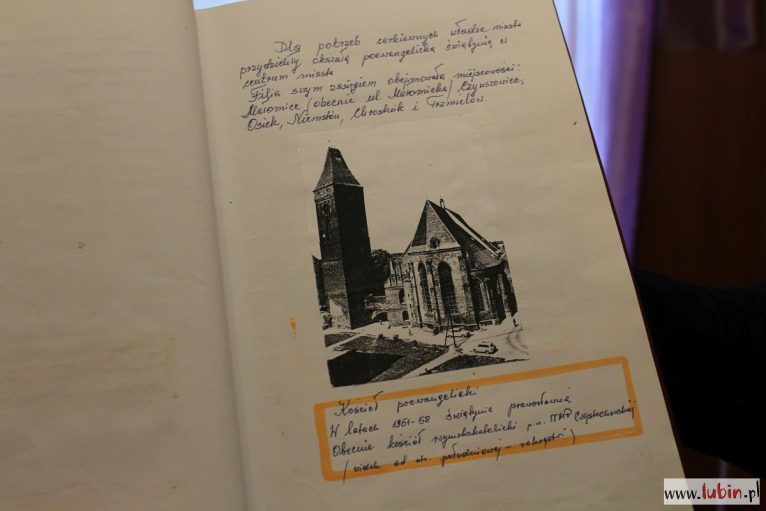 Dla potrzeb cerkiewnych władze miasta
przydzieliły okazałą poewangelicką świątynię w
centrum miasta
Filia swym zasięgiem obejmowała miejscowości:
Małomice /obecnie ul. Małomicka/ Czyszowice,
Osiek, Niemstów, Chrostnik i Trzmielów.
Kościół poewangelicki
W latach 1951-58 świątynia prawosławna
Obecnie kościół rzymskokatolicki p.w. MBP Częstochowskiej
/widok od str. południowej - zakrystii/
www.lubin.pl